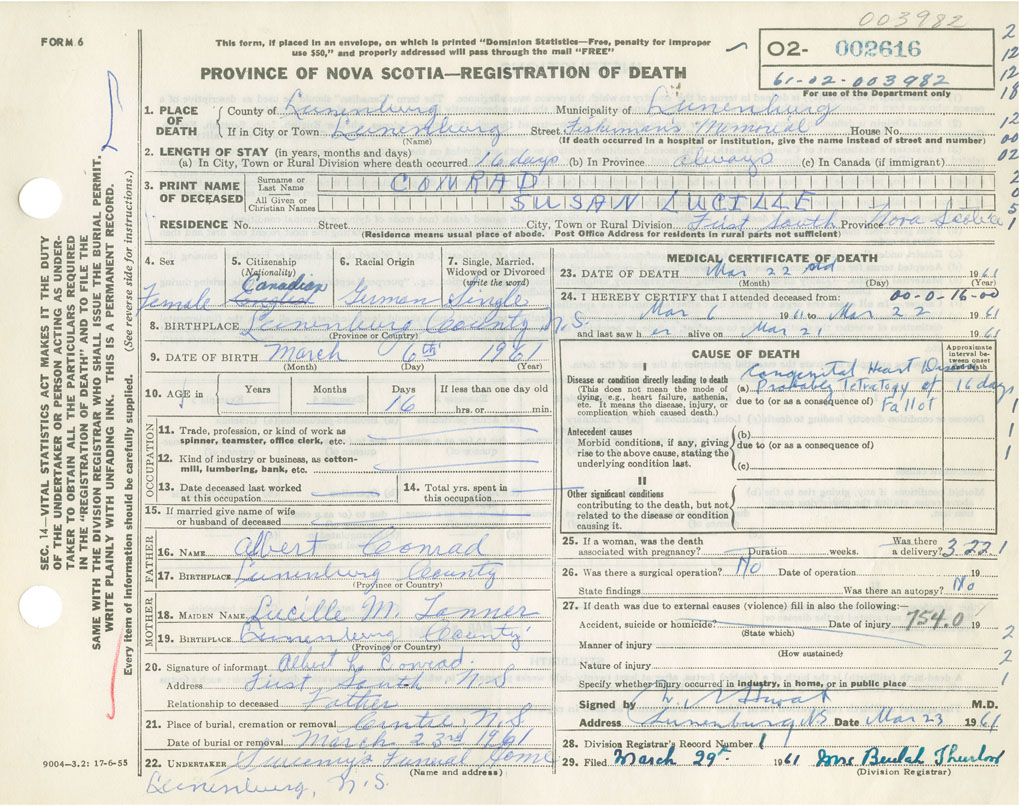 003982
FORM 6
This form, if placed in an envelope, on which is printed "Dominion Statistics—Free, penalty for improper
use $50," and properly addressed will pass through the mail "FREE"
O2- 002616
61-02-003982
For use of the Department only
PROVINCE OF NOVA SCOTIA—REGISTRATION OF DEATH
1. PLACE OF DEATH
County of Lunenburg Municipality of Lunenburg
If in City or Town Lunenburg Street Fisherman's Memorial House No.
(Name) (If death occurred in a hospital or institution, give the name instead of street and number)
2. LENGTH OF STAY (in years, months and days)
(a) In City, Town or Rural Division where death occurred 16 days (b) In Province always (c) In Canada (if immigrant)
3. PRINT NAME OF DECEASED
Surname or Last Name CONRAD
All Given or Christian Names SUSAN LUCILLE
RESIDENCE No. Street City, Town or Rural Division First South Province Nova Scotia
(Residence means usual place of abode. Post Office Address for residents in rural parts not sufficient)
4. Sex
Female
5. Citizenship
(Nationality)
Canadian
6. Racial Origin
German
7. Single, Married,
Widowed or Divorced
(write the word)
Single
8. BIRTHPLACE Lunenburg County N.S.
(Province or Country)
9. DATE OF BIRTH March 6th 1961
(Month) (Day) (Year)
10. AGE in
Years Months Days If less than one day old
16 hrs. or min.
OCCUPATION
11. Trade, profession, or kind of work as
spinner, teamster, office clerk, etc.
12. Kind of industry or business, as cotton-
mill, lumbering, bank, etc.
13. Date deceased last worked
at this occupation
14. Total yrs. spent in
this occupation
15. If married give name of wife
or husband of deceased
FATHER
16. NAME Albert Conrad
17. BIRTHPLACE Lunenburg County
(Province or Country)
MOTHER
18. MAIDEN NAME Lucille M. Tanner
19. BIRTHPLACE Lunenburg County
(Province or Country)
20. Signature of informant Albert L. Conrad.
Address First South N.S
Relationship to deceased Father
21. Place of burial, cremation or removal Centre, N.S
Date of burial or removal March 23rd 1961
22. UNDERTAKER Funeral Home
(Name and address)
Lunenburg, N.S.
MEDICAL CERTIFICATE OF DEATH
23. DATE OF DEATH Mar 22 nd 1961
(Month) (Day) (Year)
24. I HEREBY CERTIFY that I attended deceased from: 00-0-16-00
Mar 6 1961 to Mar 22 1961
and last saw her alive on Mar 21 1961
CAUSE OF DEATH
Approximate
interval be-
tween onset
and death
I
Disease or condition directly leading to death
(This does not mean the mode of
dying, e.g., heart failure, asthenia,
etc. It means the disease, injury, or
complication which caused death.)
(a) Congenital Heart Disease
Probable Tetralogy of Fallot 16 days
due to (or as a consequence of)
Antecedent causes
Morbid conditions, if any, giving
rise to the above cause, stating the
underlying condition last.
(b)
due to (or as a consequence of)
(c)
II
Other significant conditions
contributing to the death, but not
related to the disease or condition
causing it.
25. If a woman, was the death
associated with pregnancy? Duration weeks. Was there
a delivery? 3221
26. Was there a surgical operation? No Date of operation 19
State findings Was there an autopsy? No
27. If death was due to external causes (violence) fill in also the following:—
Accident, suicide or homicide? Date of injury 754.0 19
(State which)
Manner of injury
(How sustained)
Nature of injury
Specify whether injury occurred in industry, in home, or in public place
Signed by M.D.
Address Lunenburg, NS Date Mar 23 1961
28. Division Registrar's Record Number 1
29. Filed March 29th 1961 Mrs Beulah Thurlow
(Division Registrar)
9004-3.2: 17-6-55
SEC. 14—VITAL STATISTICS ACT MAKES IT THE DUTY
OF THE UNDERTAKER OR PERSON ACTING AS UNDER-
TAKER TO OBTAIN ALL THE PARTICULARS REQUIRED
IN THE "REGISTRATION OF DEATH" AND TO FILE THE
SAME WITH THE DIVISION REGISTRAR WHO SHALL ISSUE THE BURIAL PERMIT.
WRITE PLAINLY WITH UNFADING INK. THIS IS A PERMANENT RECORD.
Every item of information should be carefully supplied. (See reverse side for instructions.)
2
12
12
18
12
00
02
2
0
5
1
1
1
1
2
2
1